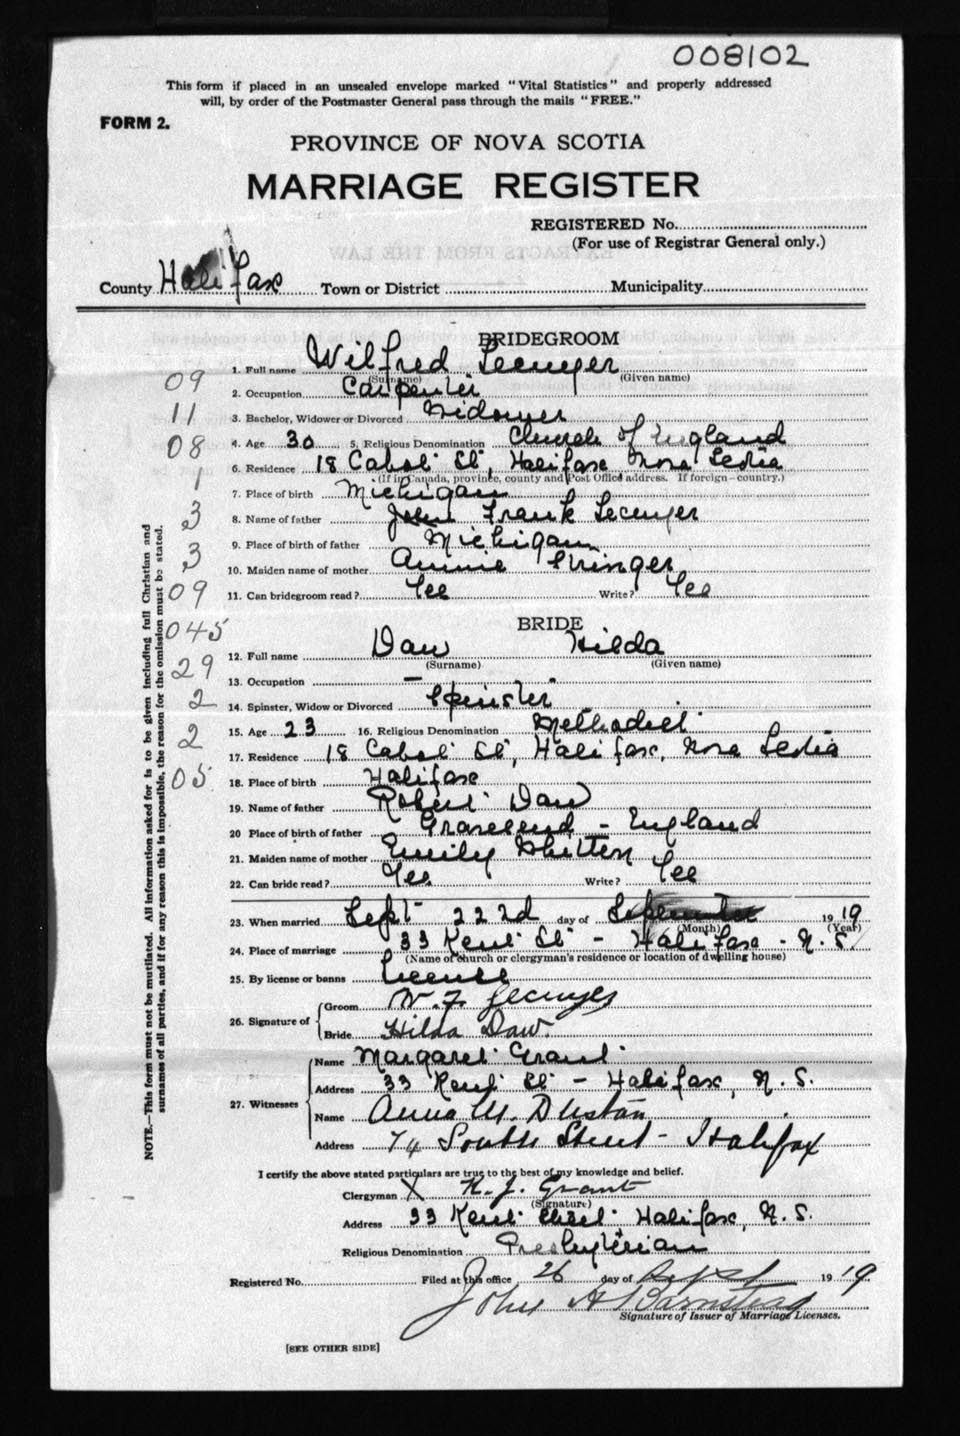 008102
This form if placed in an unsealed envelope marked "Vital Statistics" and properly addressed
will, by order of the Postmaster General pass through the mails "FREE."
FORM 2.
PROVINCE OF NOVA SCOTIA
MARRIAGE REGISTER
REGISTERED No.
(For use of Registrar General only.)
County Halifax Town or District Municipality
BRIDEGROOM
1. Full name Wilfred Lecuyer
(Surname) (Given name)
09
2. Occupation Carpenter
11
3. Bachelor, Widower or Divorced Widower
08
4. Age 30 5. Religious Denomination Church of England
6. Residence 18 Cabot St, Halifax Nova Scotia
(If in Canada, province, county and Post Office address. If foreign—country.)
1
7. Place of birth Michigan
3
8. Name of father John Frank Lecuyer
3
9. Place of birth of father Michigan
10. Maiden name of mother Annie Stringer
09
11. Can bridegroom read? Yes Write? Yes
045
BRIDE
12. Full name Daw Hilda
(Surname) (Given name)
29
13. Occupation —
2
14. Spinster, Widow or Divorced Spinster
15. Age 23 16. Religious Denomination Methodist
2
17. Residence 18 Cabot St, Halifax, Nova Scotia
05
18. Place of birth Halifax
19. Name of father Robert Daw
20 Place of birth of father Gravesend - England
21. Maiden name of mother Emily Whitten
22. Can bride read? Yes Write? Yes
23. When married Sept 22nd day of September 1919
(Month) (Year)
24. Place of marriage 33 Kent St - Halifax - N.S.
(Name of church or clergyman's residence or location of dwelling house)
25. By license or banns License
26. Signature of Groom W. F. Lecuyer
Bride Hilda Daw.
27. Witnesses Name Margaret Grant
Address 33 Kent St - Halifax, N.S.
Name Anna M. Dustan
Address 74 South Street - Halifax
I certify the above stated particulars are true to the best of my knowledge and belief.
Clergyman X K. J. Grant
(Signature)
Address 33 Kent Street, Halifax, N.S.
Religious Denomination Presbyterian
Registered No. Filed at this office 26 day of Sept 1919
John A Barnstead
Signature of Issuer of Marriage Licenses.
[SEE OTHER SIDE]
NOTE.—This form must not be mutilated. All information asked for is to be given including full Christian and
surnames of all parties, and if for any reason this is impossible, the reason for the omission must be stated.